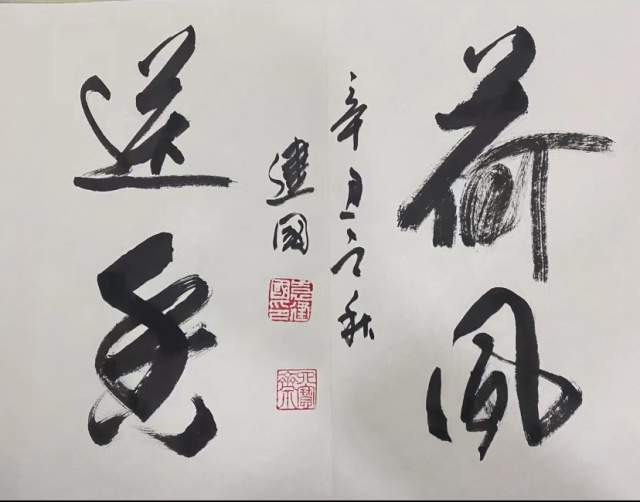 荷風
送香
辛丑之秋
建國